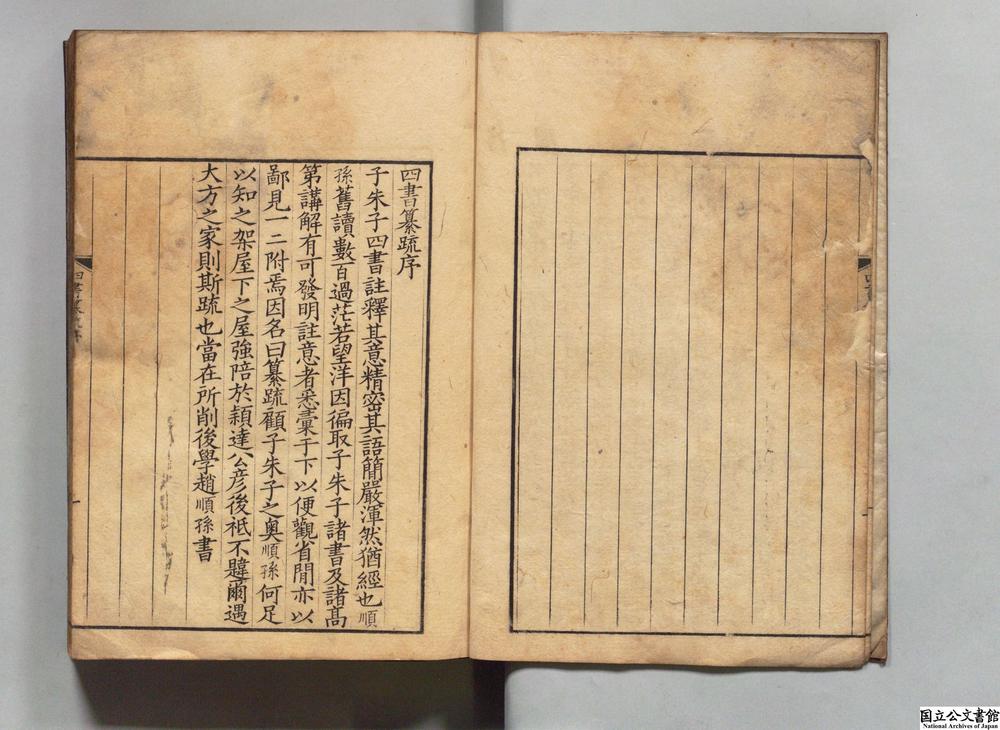 四書纂疏序
子朱子四書註釋其意精密其語簡嚴渾然猶經也順
孫舊讀數百過茫若望洋因徧取子朱子諸書及諸高
第講解有可發明註意者悉彙于下以便觀省閒亦以
鄙見一二附焉因名曰纂疏顧子朱子之奧順孫何足
以知之架屋下之屋強陪於穎達公彥後祇不韙爾遇
大方之家則斯疏也當在所削後學趙順孫書
国立公文書館
National Archives of Japan